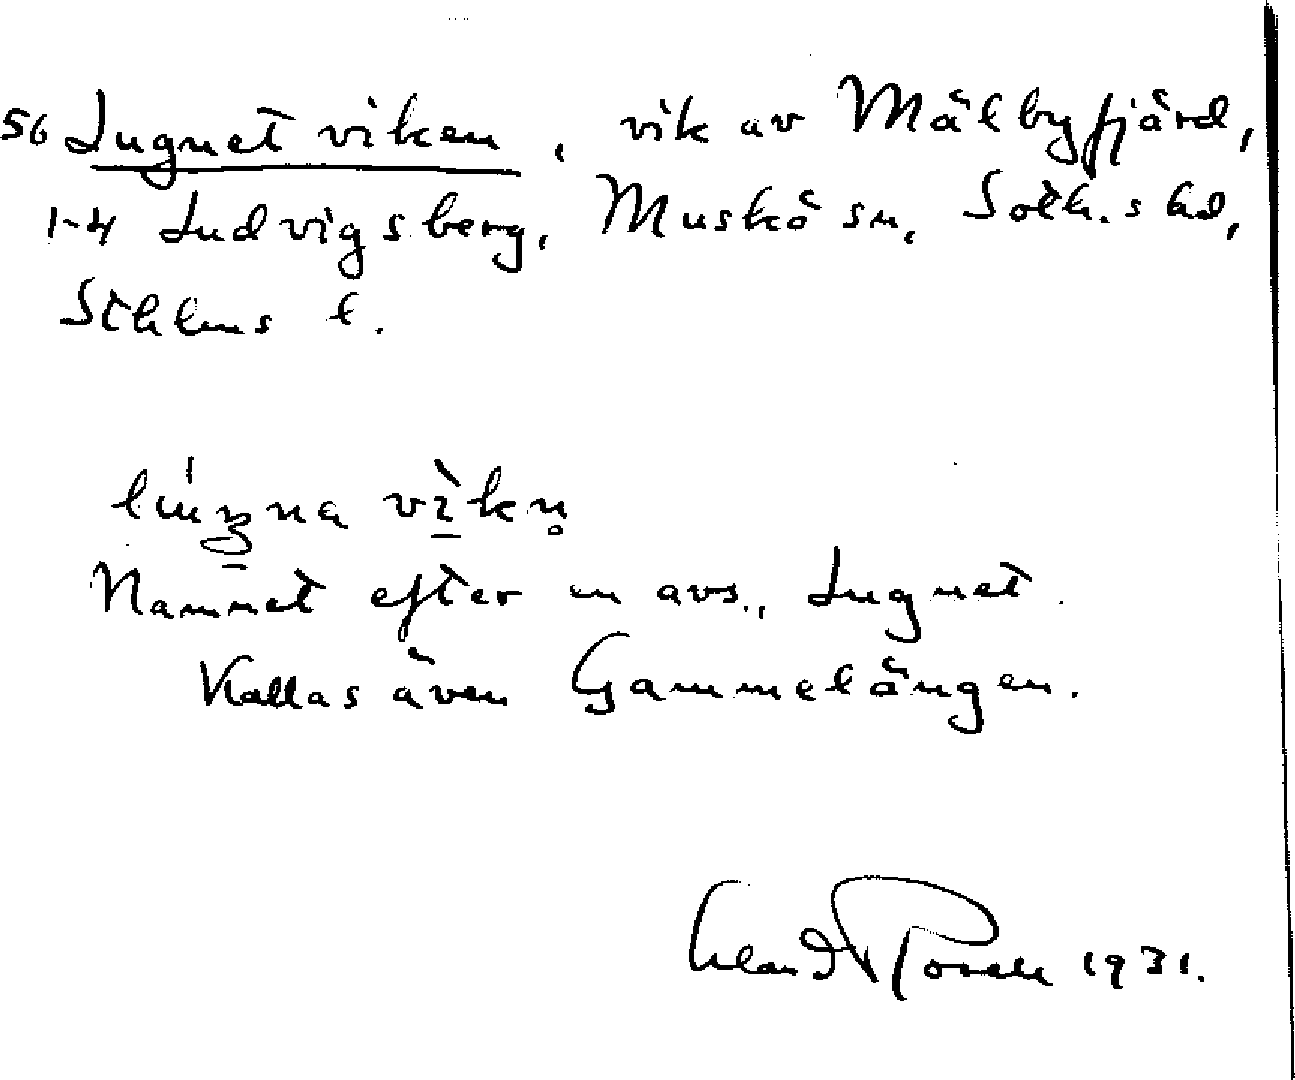 56 Lugnet viken, vik av Mälbyfjärd,
1-4 Ludvigsberg, Muskö sn, Soth.s hd,
Sthlms l.
Namnet efter en avs., Lugnet.
Kallas även Gammelängen.
Erland Rosell 1931.